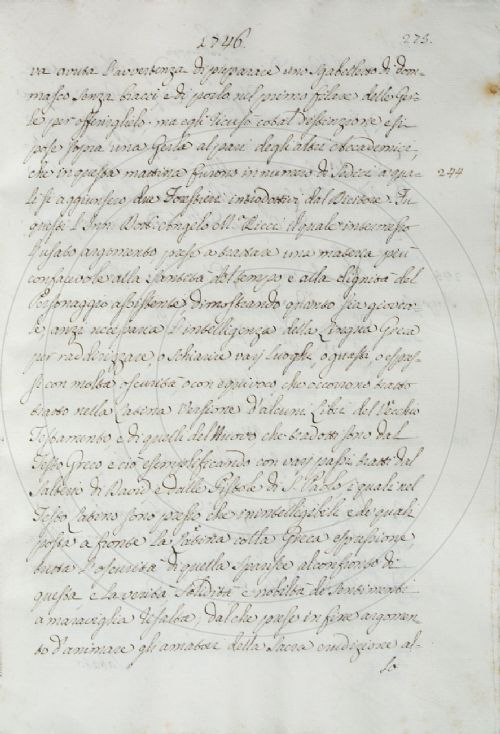 1746.
273.
va avuta l'avvertenza di preparare uno sgabelletto di dom-
masco senza bracci, e di porlo nel primo filare delle Ger-
le per offerirglielo: ma egli ricusò cotal distinzione e si
pose sopra una Gerla al pari degli altri Accademici,
che in questa mattina furono in numero di sedeci a qua-
244
li si aggiunsero due Forestieri introdottivi dal
questi l'Inn. Dott. Angelo M. Ricci il quale intermesso
l'usato argomento prese a trattare una materia più
confacevole alla santità del tempo e alla dignità del
Personaggio assistente dimostrando quanto sia giovevo-
le, anzi necessaria l'intelligenza della Lingua Greca
per raddirizzare, o schiarire varj luoghi, o guasti, o espres-
si con molta oscurità, o con equivoco che occorrono tratto
tratto nella Latina Versione d'alcuni Libri del Vecchio
Testamento, e di quelli del Nuovo che tradotti sono dal
Testo Greco e ciò esemplificando con varj passi tratti dal
Salterio di David, e dalle Pistole di S. Paolo i quali nel
Testo Latino sono presso che inintelligibili e de quali
posta a fronte la Latina colla Greca espressione,
tutta l'oscurità di quella sparisce al confronto di
questa, e la verità solidità e nobiltà de sentimenti
a maraviglia risalta; dal che prese in fine argomen-
to d'animare gli amatori della Sacra erudizione al-
lo